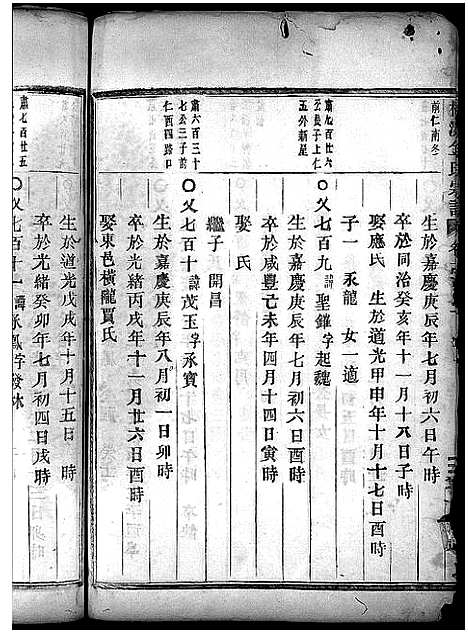 生於嘉慶庚辰年七月初六日午時
卒於同治癸亥年十一月十八日子時
娶應氏 生於道光甲申年十月十七日酉時
子一 永龍 女一適
前仁南冬
〇乂七百九 諱聖鏙字起魏
肅九百廿六
公長子上仁
五外新屋
生於嘉慶庚辰年七月初六日酉時
卒於咸豐丁未年四月十四日寅時
娶 氏
繼子 開昌
〇乂七百十 諱茂玉字承寶
肅六百三十
七公三子前
仁西四路口
生於嘉慶庚辰年八月初一日卯時
卒於光緒丙戌年十一月廿六日酉時
娶東邑橫龍賈氏
〇乂七百十一 諱承鳳字發林
肅七百廿五
生於道光戊戌年十月十五日 時
卒於光緒癸卯年七月初四日戌時